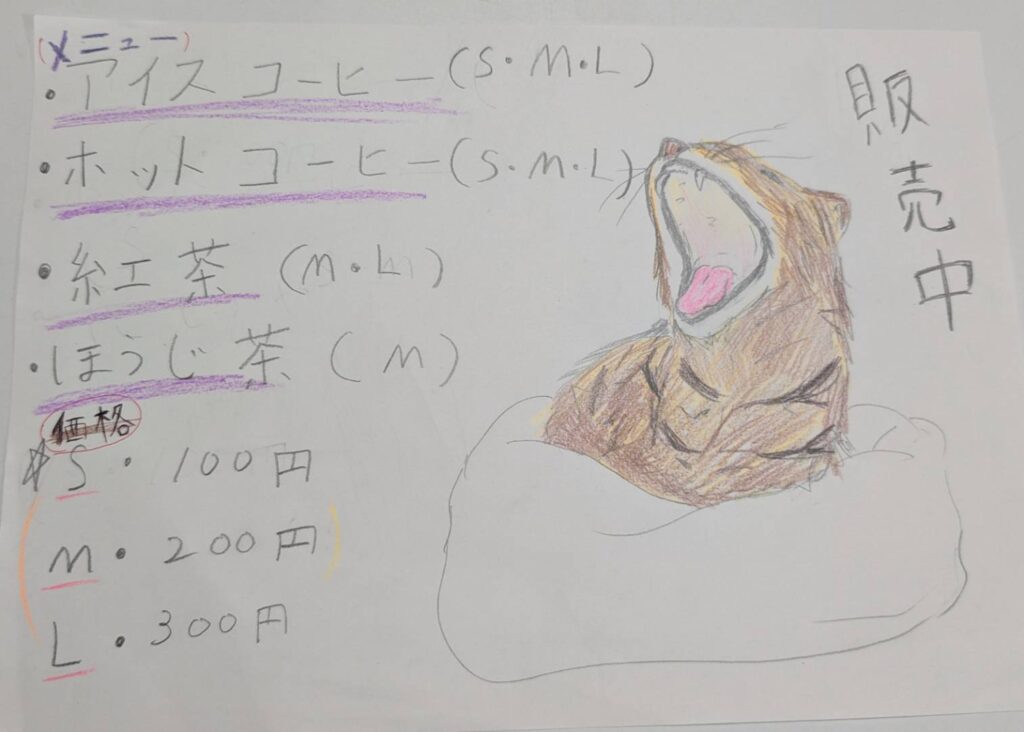 (メニュー)
・アイス コーヒー(S・M・L)
・ホット コーヒー(S・M・L)
・紅茶 (M・L)
・ほうじ茶 (M)
価格
S・100円
M・200円
L・300円
販売中